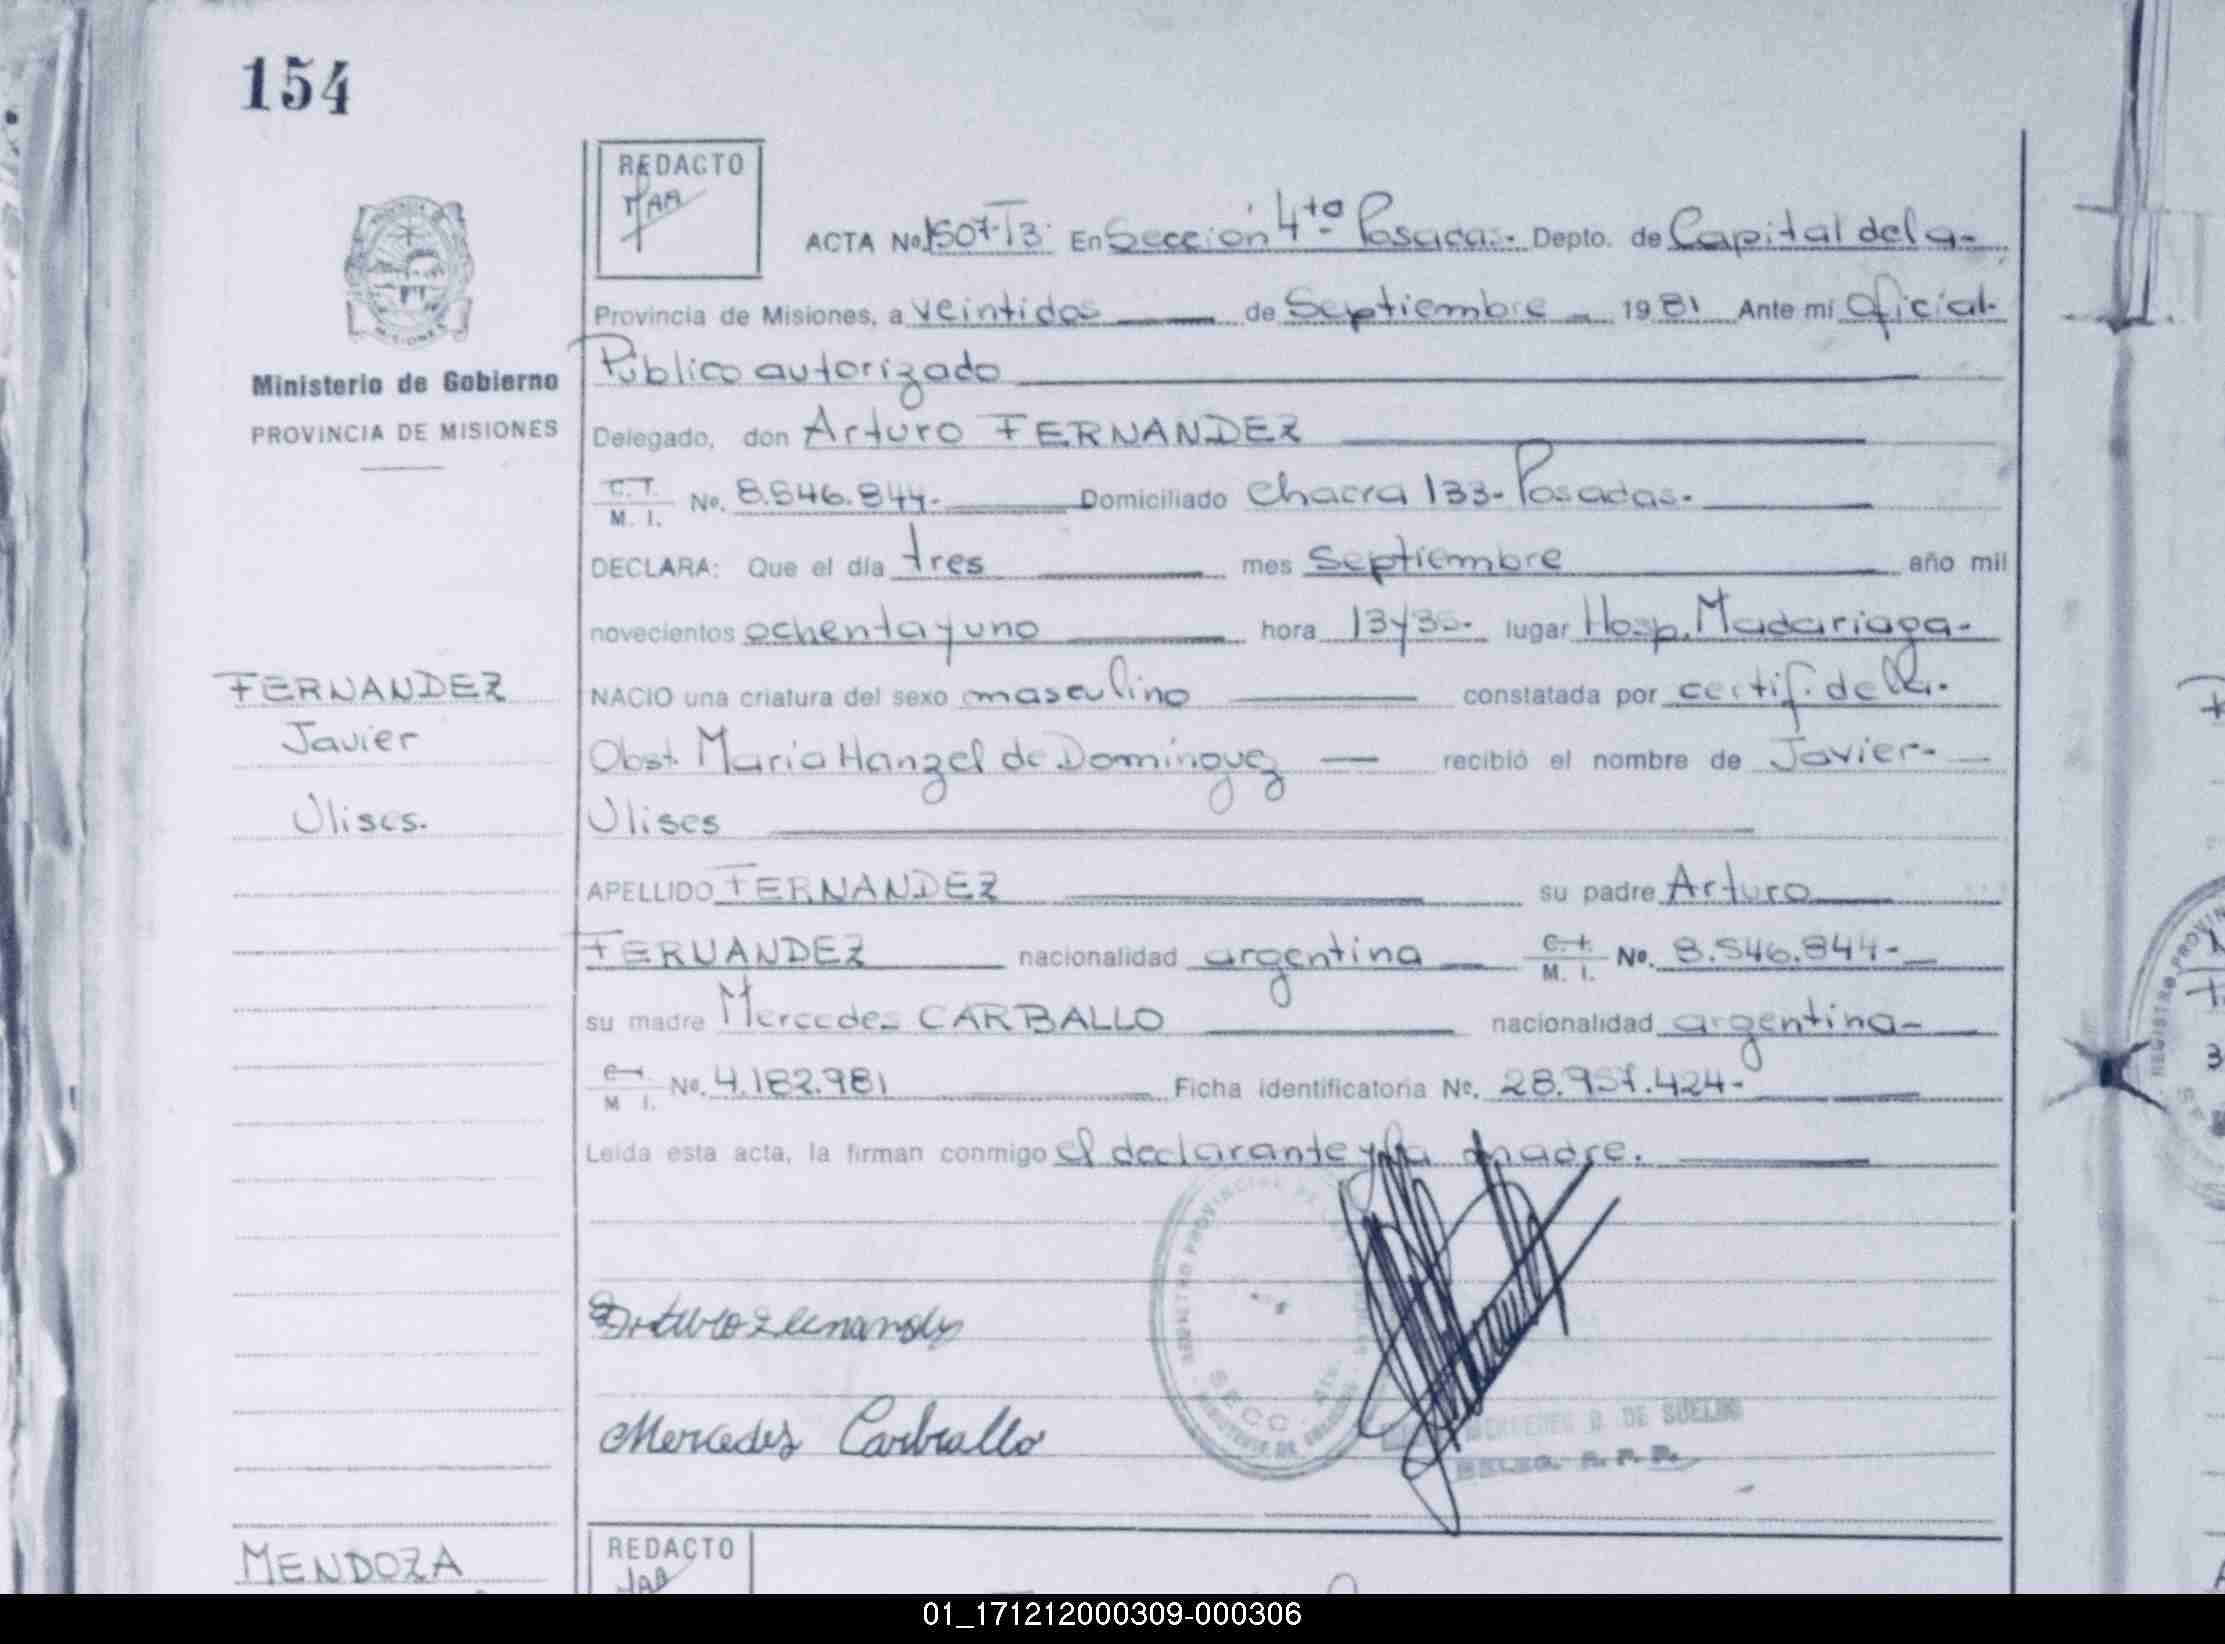 154
REDACTO
PROVINCIA DE
MISIONES
ACTA No. 1507-T3. En Sección 4ta Posadas. Depto. de Capital de la
Provincia de Misiones, a veintidos de Septiembre 1981 Ante mí Oficial
Público autorizado
Ministerio de Gobierno
PROVINCIA DE MISIONES
Delegado, don Arturo FERNANDEZ
M. I. No. 8.546.844. Domiciliado Chacra 133. Posadas.
DECLARA: Que el día tres mes Septiembre año mil
novecientos ochenta y uno hora 13y35. lugar Hosp. Madariaga
FERNANDEZ
Javier
Ulises.
NACIO una criatura del sexo masculino constatada por certif. de la
Obst. Maria Hanzel de Dominguez recibió el nombre de Javier
Ulises
APELLIDO FERNANDEZ su padre Arturo
FERNANDEZ nacionalidad argentina M. I. No. 8.546.844
su madre Mercedes CARBALLO nacionalidad argentina
M I. No. 4.182.981 Ficha identificatoria No. 28.957.424
Leída esta acta, la firman conmigo el declarante y la madre.
REGISTRO PROVINCIAL DE
SECC. 4ta.
Arturo Fernandez
Mercedes Carballo
MERCEDES D. DE SUELDO
DELEG. R. P. P.
MENDOZA
REDACTO
REGISTRO PROVIN
01_171212000309-000306